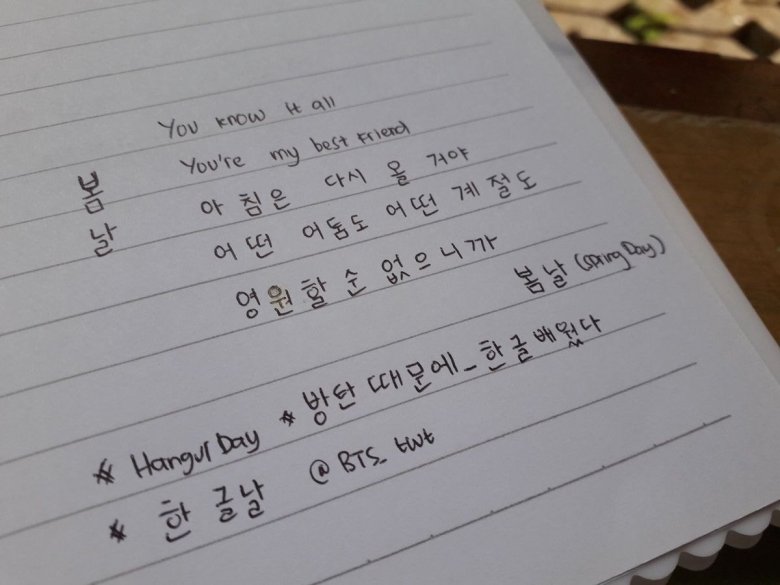 You know it all
You're my best friend
봄 아침은 다시 올 거야
날 어떤 어둠도 어떤 계절도
영원할 순 없으니까
봄날 (Spring Day)
* Hangul Day * 방탄 때문에_한글배웠다
* 한글날 @BTS_twt